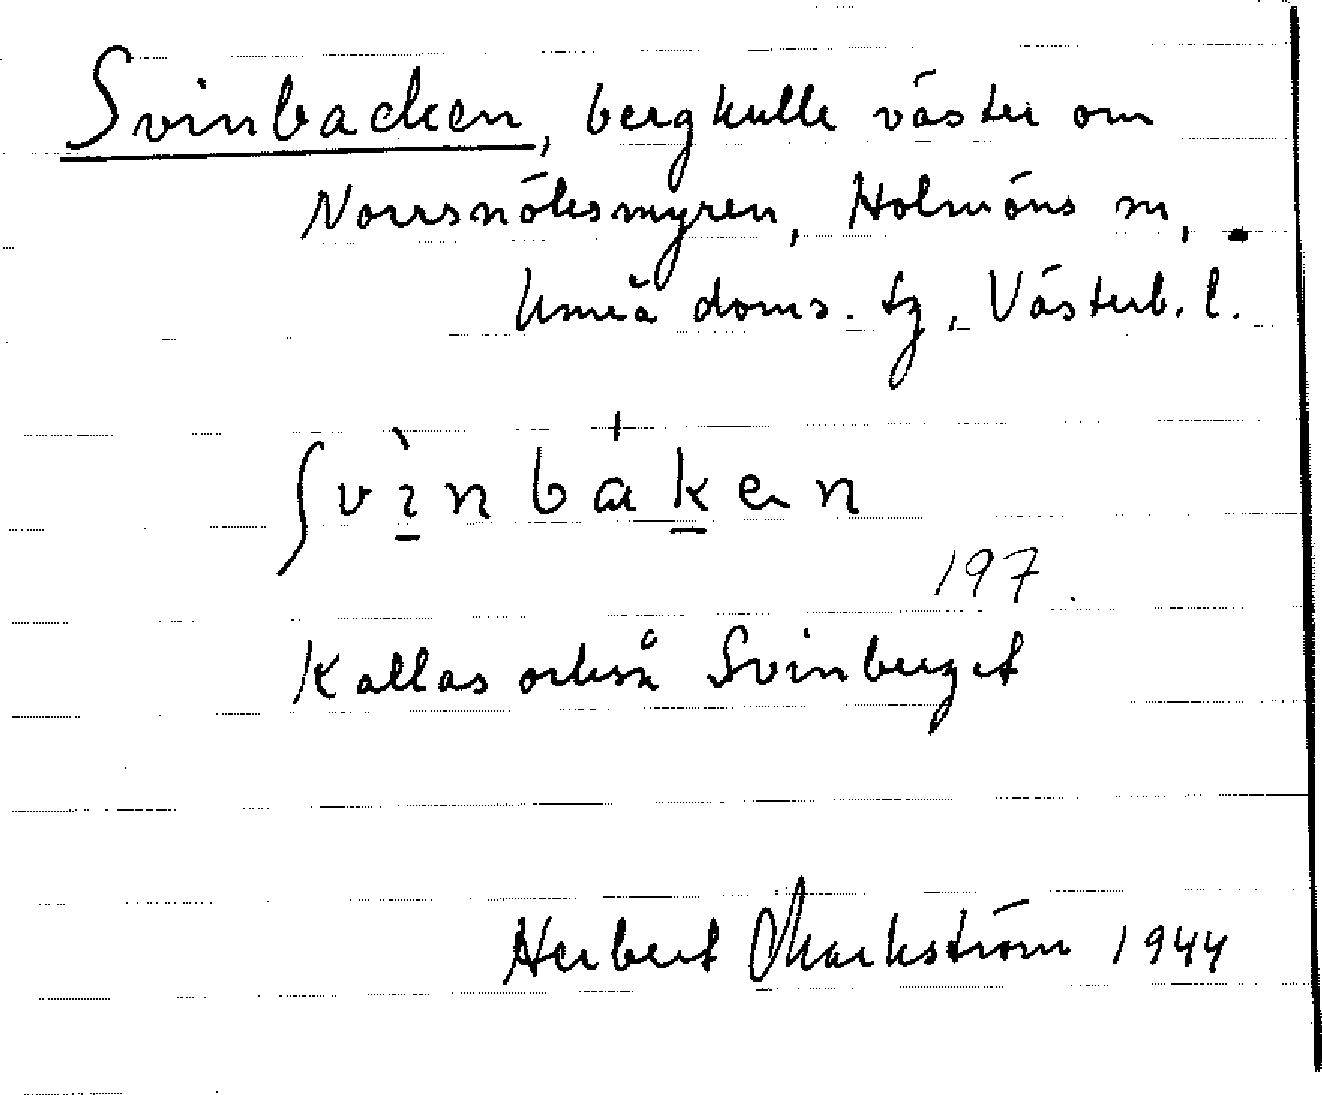 Svinbacken, bergkulle väster om
Norrsnöksmyren, Holmöns sn,
Umeå doms. tg, Västerb. l.
ʃvìnbaken
197.
Kallas också Svinberget
Herbert Markström 1944